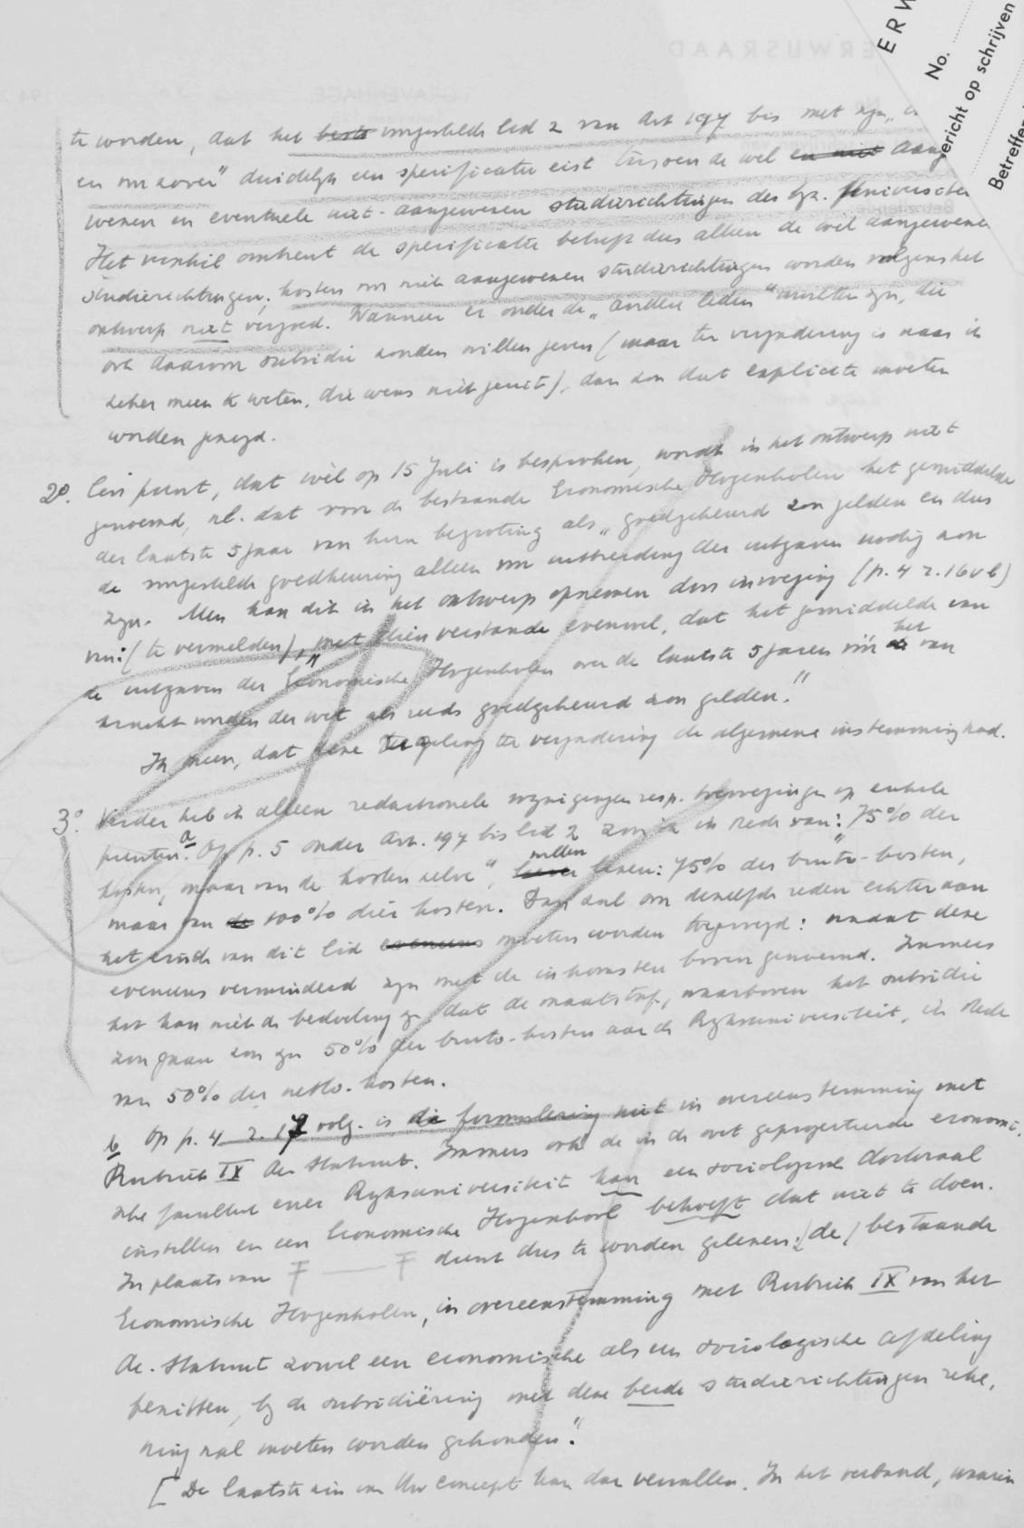 ERW
No.
ericht op schrijven
Betreffen
ERWIJSRAAD
te worden, dat het beste omgestelde lid 2 van Art 197 bis met zijn „in
en voor zover" duidelijk een specificatie eist tussen de wel en niet aange
wezen en eventuele niet-aangewezen studierichtingen der bijz. universiteiten
Het verschil omtrent de specificatie betreft dus alleen de wel aangewezen
studierichtingen; kosten voor niet aangewezen studierichtingen worden volgens het
ontwerp niet vergoed. Wanneer er onder de „andere leden" mochten zijn, die
ook daarvoor subsidie zouden willen geven (maar ter vergadering is naar ik
zeker meen te weten, die wens niet geuit), dan zou dat expliciete moeten
worden gezegd.
2º. Een punt, dat wèl op 15 Juli is besproken, wordt in het ontwerp niet
genoemd, nl. dat voor de bestaande Economische Hogescholen het gemiddelde
der laatste 5 jaar van hun begroting als „goedgekeurd" zou gelden en dus
de voorgestelde goedkeuring alleen voor uitbreiding der uitgaven nodig zou
zijn. Men kan dit in het ontwerp opnemen door invoeging (p. 4 r. 16 v b)
van: (te vermelden), „met dien verstande evenwel, dat het gemiddelde van
de uitgaven der Economische Hogescholen over de laatste 5 jaren vóór het van
kracht worden der wet als reeds goedgekeurd zou gelden."
Ik meen, dat deze regeling ter vergadering de algemene instemming had.
3º. Verder heb ik alleen redactionele wijzigingen resp. toevoegingen op enkele
punten. a Op p. 5 onder Art. 197 bis lid 2 zou ik in stede van: „75% der
kosten, maar van de kosten zelve", willen lezen: „75% der bruto-kosten,
maar van de 100% dier kosten. Dan zal om dezelfde reden echter aan
het einde van dit lid eveneens moeten worden toegevoegd: nadat deze
eveneens verminderd zijn met de inkomsten boven genoemd. Immers
het kan niet de bedoeling zijn dat de maatstaf, waarboven het subsidie
zou gaan zou zijn 50% der bruto-kosten aan de Rijksuniversiteit, in stede
van 50% der netto-kosten.
b Op p. 4 r. 17 volg. is de formulering niet in overeenstemming met
Rubriek IX Ac. Statuut. Immers ook de in de wet geprojecteerde economi-
sche faculteit ener Rijksuniversiteit kan een sociologisch doctoraal
instellen en een Economische Hogeschool behoeft dat niet te doen.
In plaats van F — F dient dus te worden gelezen: „(de) bestaande
Economische Hogescholen, in overeenstemming met Rubriek IX van het
Ac. Statuut zowel een economische als een sociologische afdeling
bezitten, bij de subsidiëring met deze beide studierichtingen reke-
ning zal moeten worden gehouden".
[De laatste zin van Uw concept kan dan vervallen. In het verband, waarin